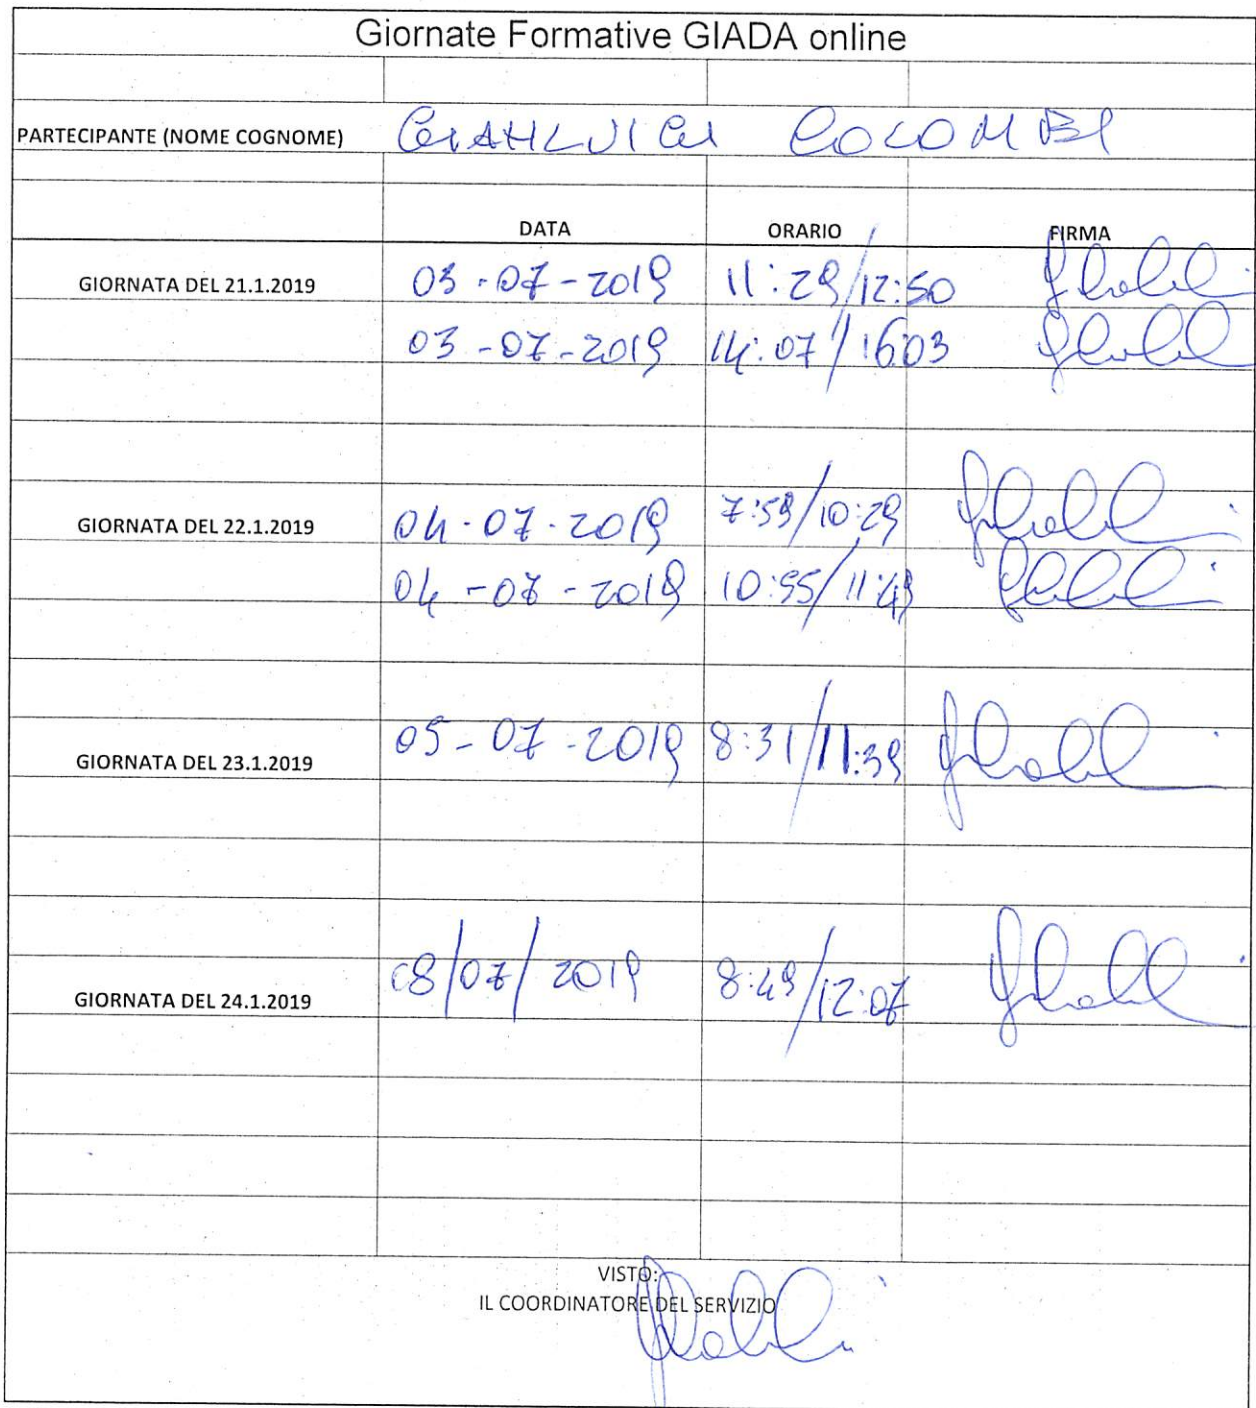 Giornate Formative GIADA online
PARTECIPANTE (NOME COGNOME) GIANLUIGI COLOMBI
DATA ORARIO FIRMA
GIORNATA DEL 21.1.2019 03-07-2019 11:29/12:50
03-07-2019 14:07/16:03
GIORNATA DEL 22.1.2019 04-07-2019 7:59/10:29
04-07-2019 10:55/11:49
GIORNATA DEL 23.1.2019 05-07-2019 8:31/11:39
GIORNATA DEL 24.1.2019 08/07/2019 8:49/12:07
VISTO:
IL COORDINATORE DEL SERVIZIO